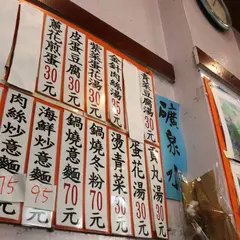 青菜豆腐湯30元
金針肉絲湯35元
紫菜蛋花湯30元
皮蛋豆腐30元
蔥花煎蛋30元
貢丸湯30元
蛋花湯30元
燙青菜30元
鍋燒冬粉70元
鍋燒意麵70元
海鮮炒意麵95
肉絲炒意麵75
礦泉水